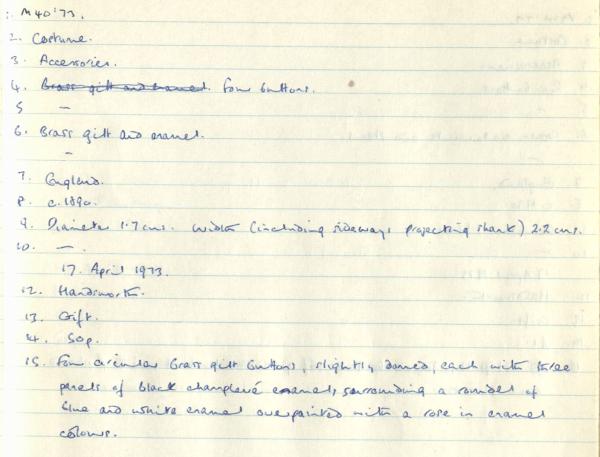 : M40'73.
2. Costume.
3. Accessories.
4. Brass gilt and enamel. Four buttons.
5 —
6. Brass gilt and enamel.
—
7. England.
8. c.1890.
9. Diameter 1.7 cms. Width (including sideways projecting shank) 2.2 cms.
10. —.
17. April 1973.
12. Handsworth.
13. Gift.
14. 50p.
15. Four circular brass gilt buttons, slightly domed, each with three
panels of black champlevé enamel, surrounding a roundel of
blue and white enamel overpainted with a rose in enamel
colours.